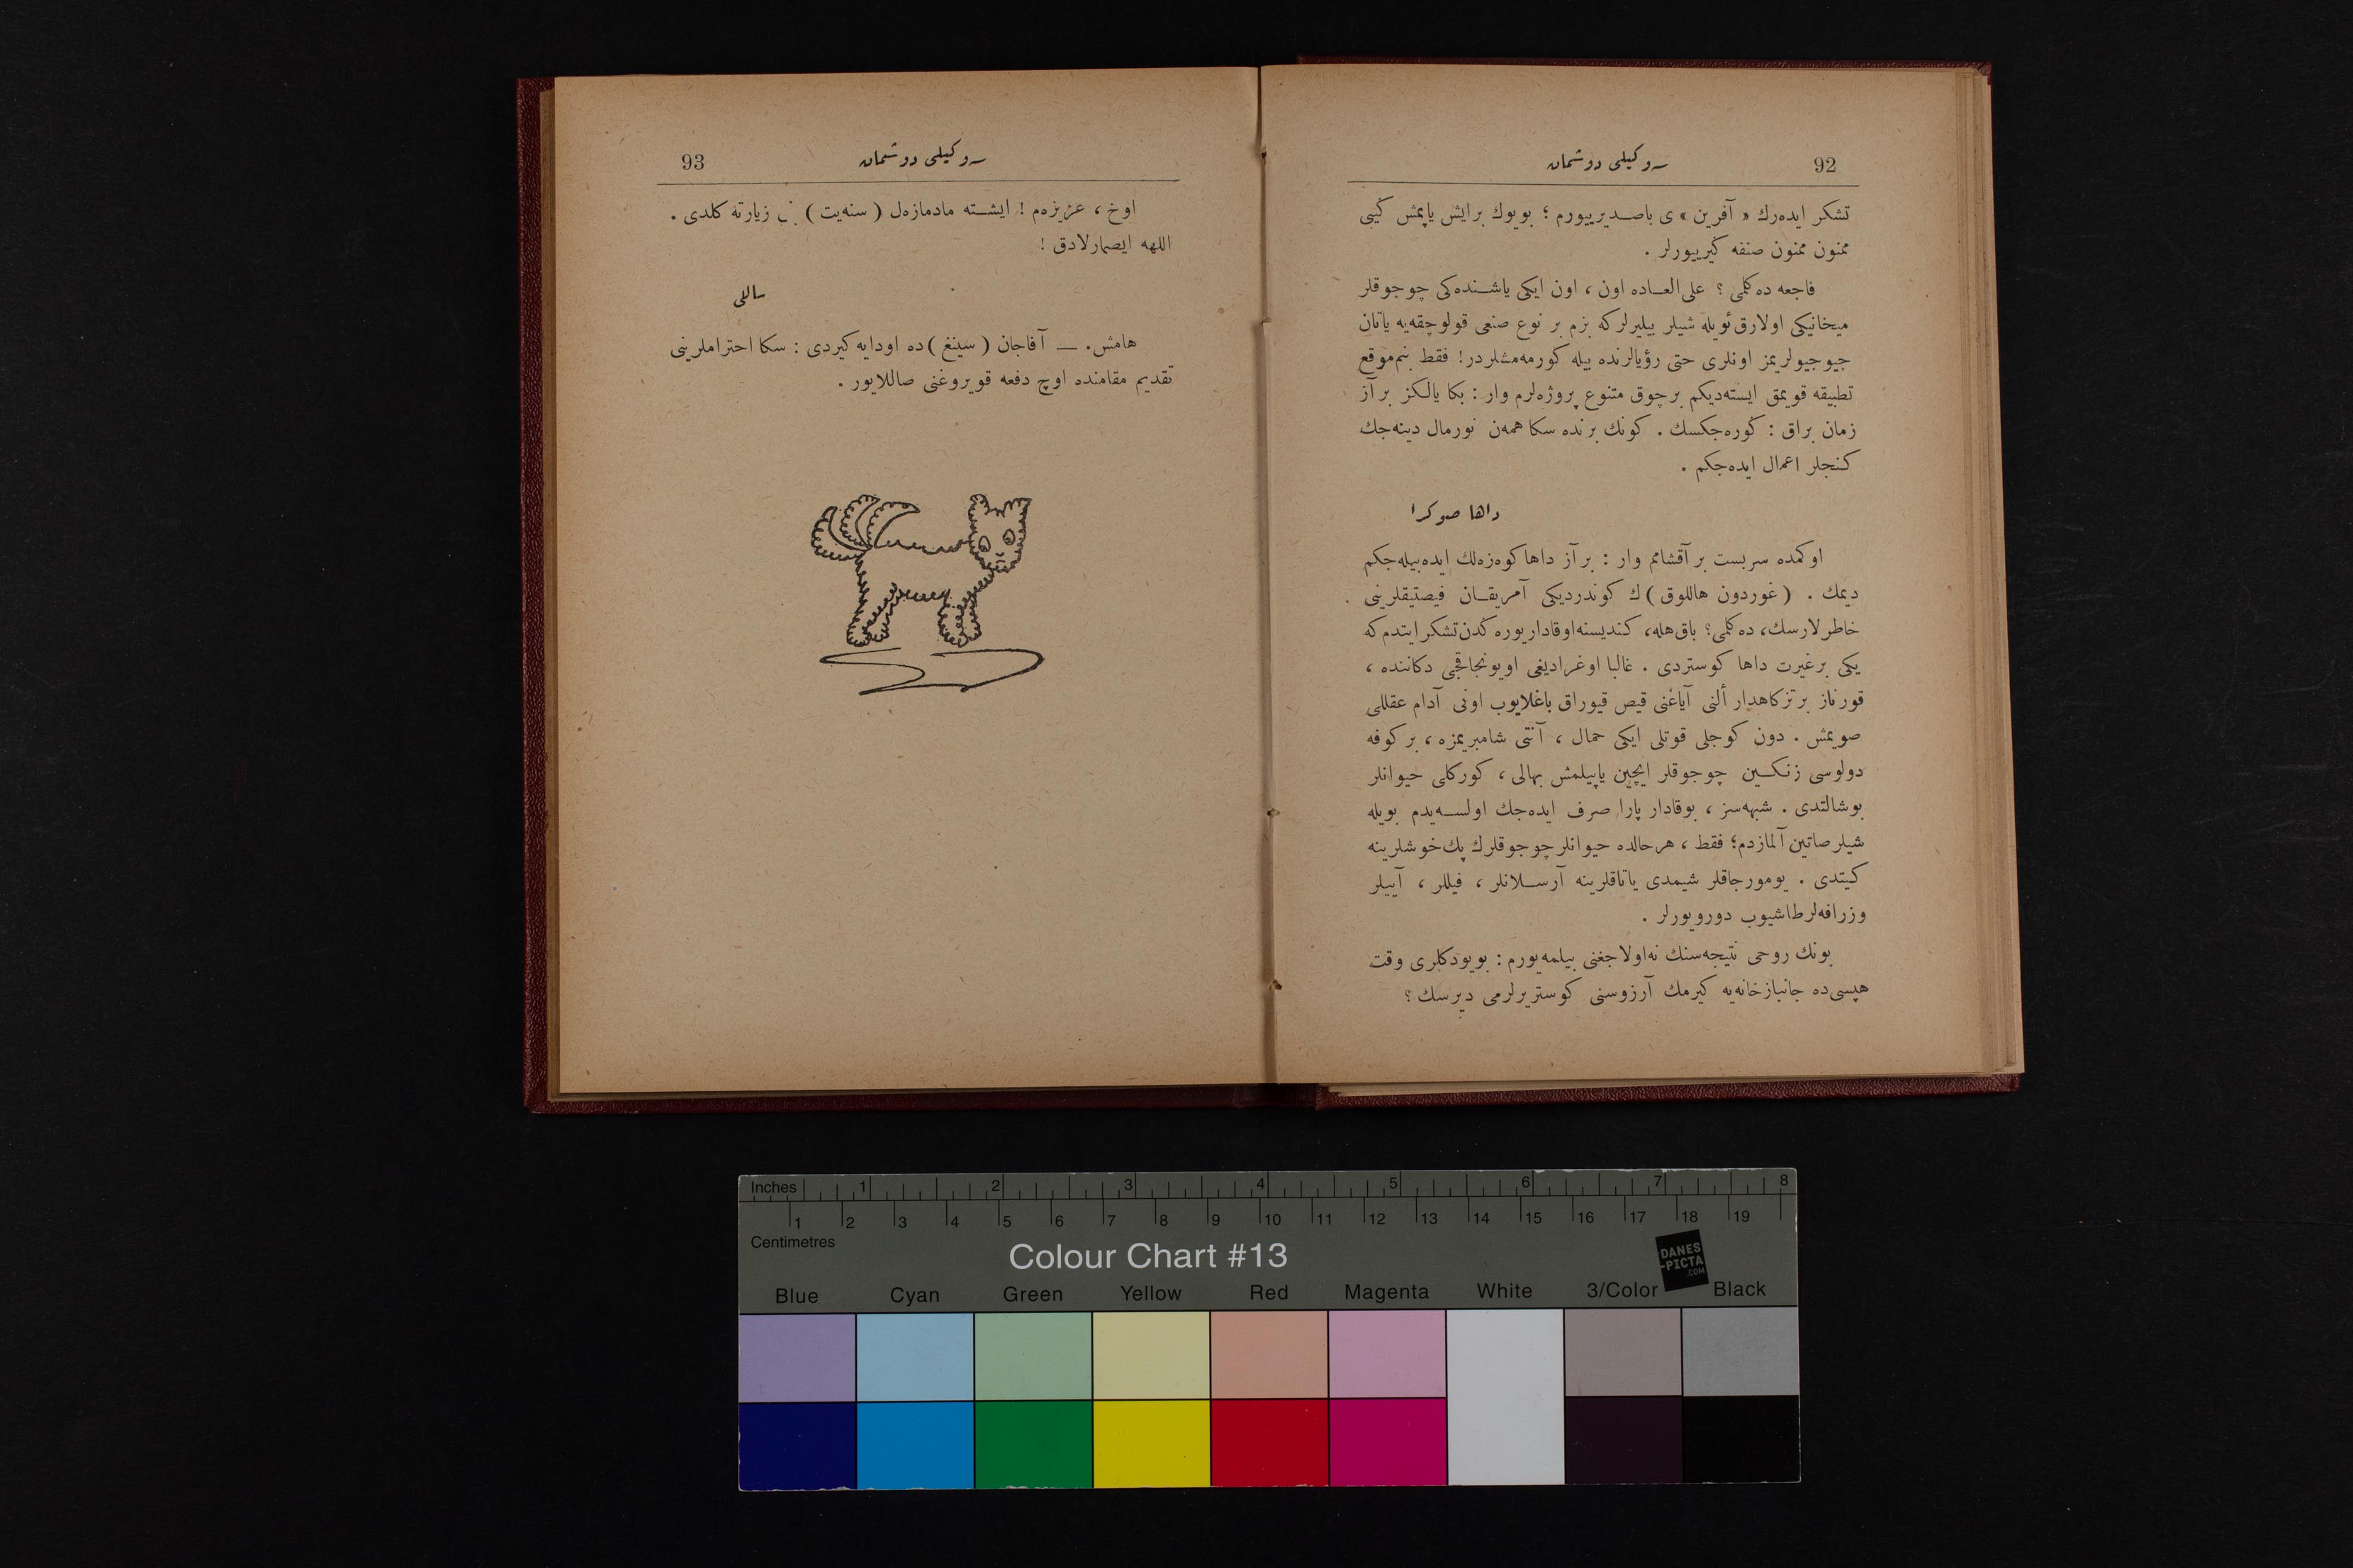 92
سوكیلی دوشمان
تشكر ایده‌رك « آفرین » ی باصدیرییورم ؛ بویوك برایش یاپمش كیبی
ممنون ممنون صنفه كیرییورلر .
فاجعه ده‌كلمی ؟ علی‌العاده اون ، اون ایكی یاشنده‌كی چوجوقلر
میخانیكی اولارق ئویله شیلر بیلیرلركه بزم بر نوع صنعی قولوچقه‌یه یاتان
جیوجیولریمز اونلری حتی رؤیالرنده بیله كورمه‌مشلردر! فقط بنم‌موقع
تطبیقه قویمق ایسته‌دیكم برچوق متنوع پروژه‌لرم وار : بكا یالكز بر آز
زمان براق : كوره‌جكسك . كونك برنده سكا همه‌ن نورمال دینه‌جك
كنجلر اعمال ایده‌جكم .
داها صوكرا
اوكمده سربست بر آقشامم وار : بر آز داها كوه‌زه‌لك ایده‌بیله‌جكم
دیمك . ( غوردون هاللوق ) ك كوندردیكی آمریقان فیصتیقلرینی
خاطرلارسك، ده‌كلمی؟ باق‌هله، كندیسنه‌اوقاداریوره‌كدن‌تشكر ایتدم كه
یكی برغیرت داها كوستردی . غالبا اوغرادیغی اویونجاقجی دكاننده ،
قورناز برتزكاهدار ألنی آیاغنی قیص قیوراق باغلایوب اونی آدام عقللی
صویمش . دون كوجلی قوتلی ایكی حمال ، آنتی شامبریمزه ، بر كوفه
دولوسی زنكین چوجوقلر ایچین یاپیلمش بهالی ، كوركلی حیوانلر
بوشالتدی . شبهه‌سز ، بوقادار پارا صرف ایده‌جك اولسه‌یدم بویله
شیلر صاتین آلمازدم؛ فقط ، هرحالده حیوانلر چوجوقلرك پك‌خوشلرینه
كیتدی . یومورجاقلر شیمدی یاتاقلرینه آرسلانلر ، فیللر ، آییلر
وزرافه‌لرطاشیوب دورویورلر .
بونك روحی نتیجه‌سنك نه‌اولاجغنی بیلمه‌یورم : بویودكلری وقت
هپسی‌ده جانبازخانه‌یه كیرمك آرزوسنی كوستریرلرمی دیرسك ؟
93
سوكیلی دوشمان
اوخ ، عزیزه‌م ! ایشته مادمازه‌ل ( سنه‌یت ) زیارته كلدی .
اللهه ایصمارلادق !
ساللی
هامش. — آفاجان ( سینغ ) ده اودایه كیردی : سكا احتراملرینی
تقدیم مقامنده اوچ دفعه قویروغنی صاللایور .
Inches 1 2 3 4 5 6 7 8
1 2 3 4 5 6 7 8 9 10 11 12 13 14 15 16 17 18 19
Centimetres
Colour Chart #13
DANES
-PICTA
.COM
Blue Cyan Green Yellow Red Magenta White 3/Color Black